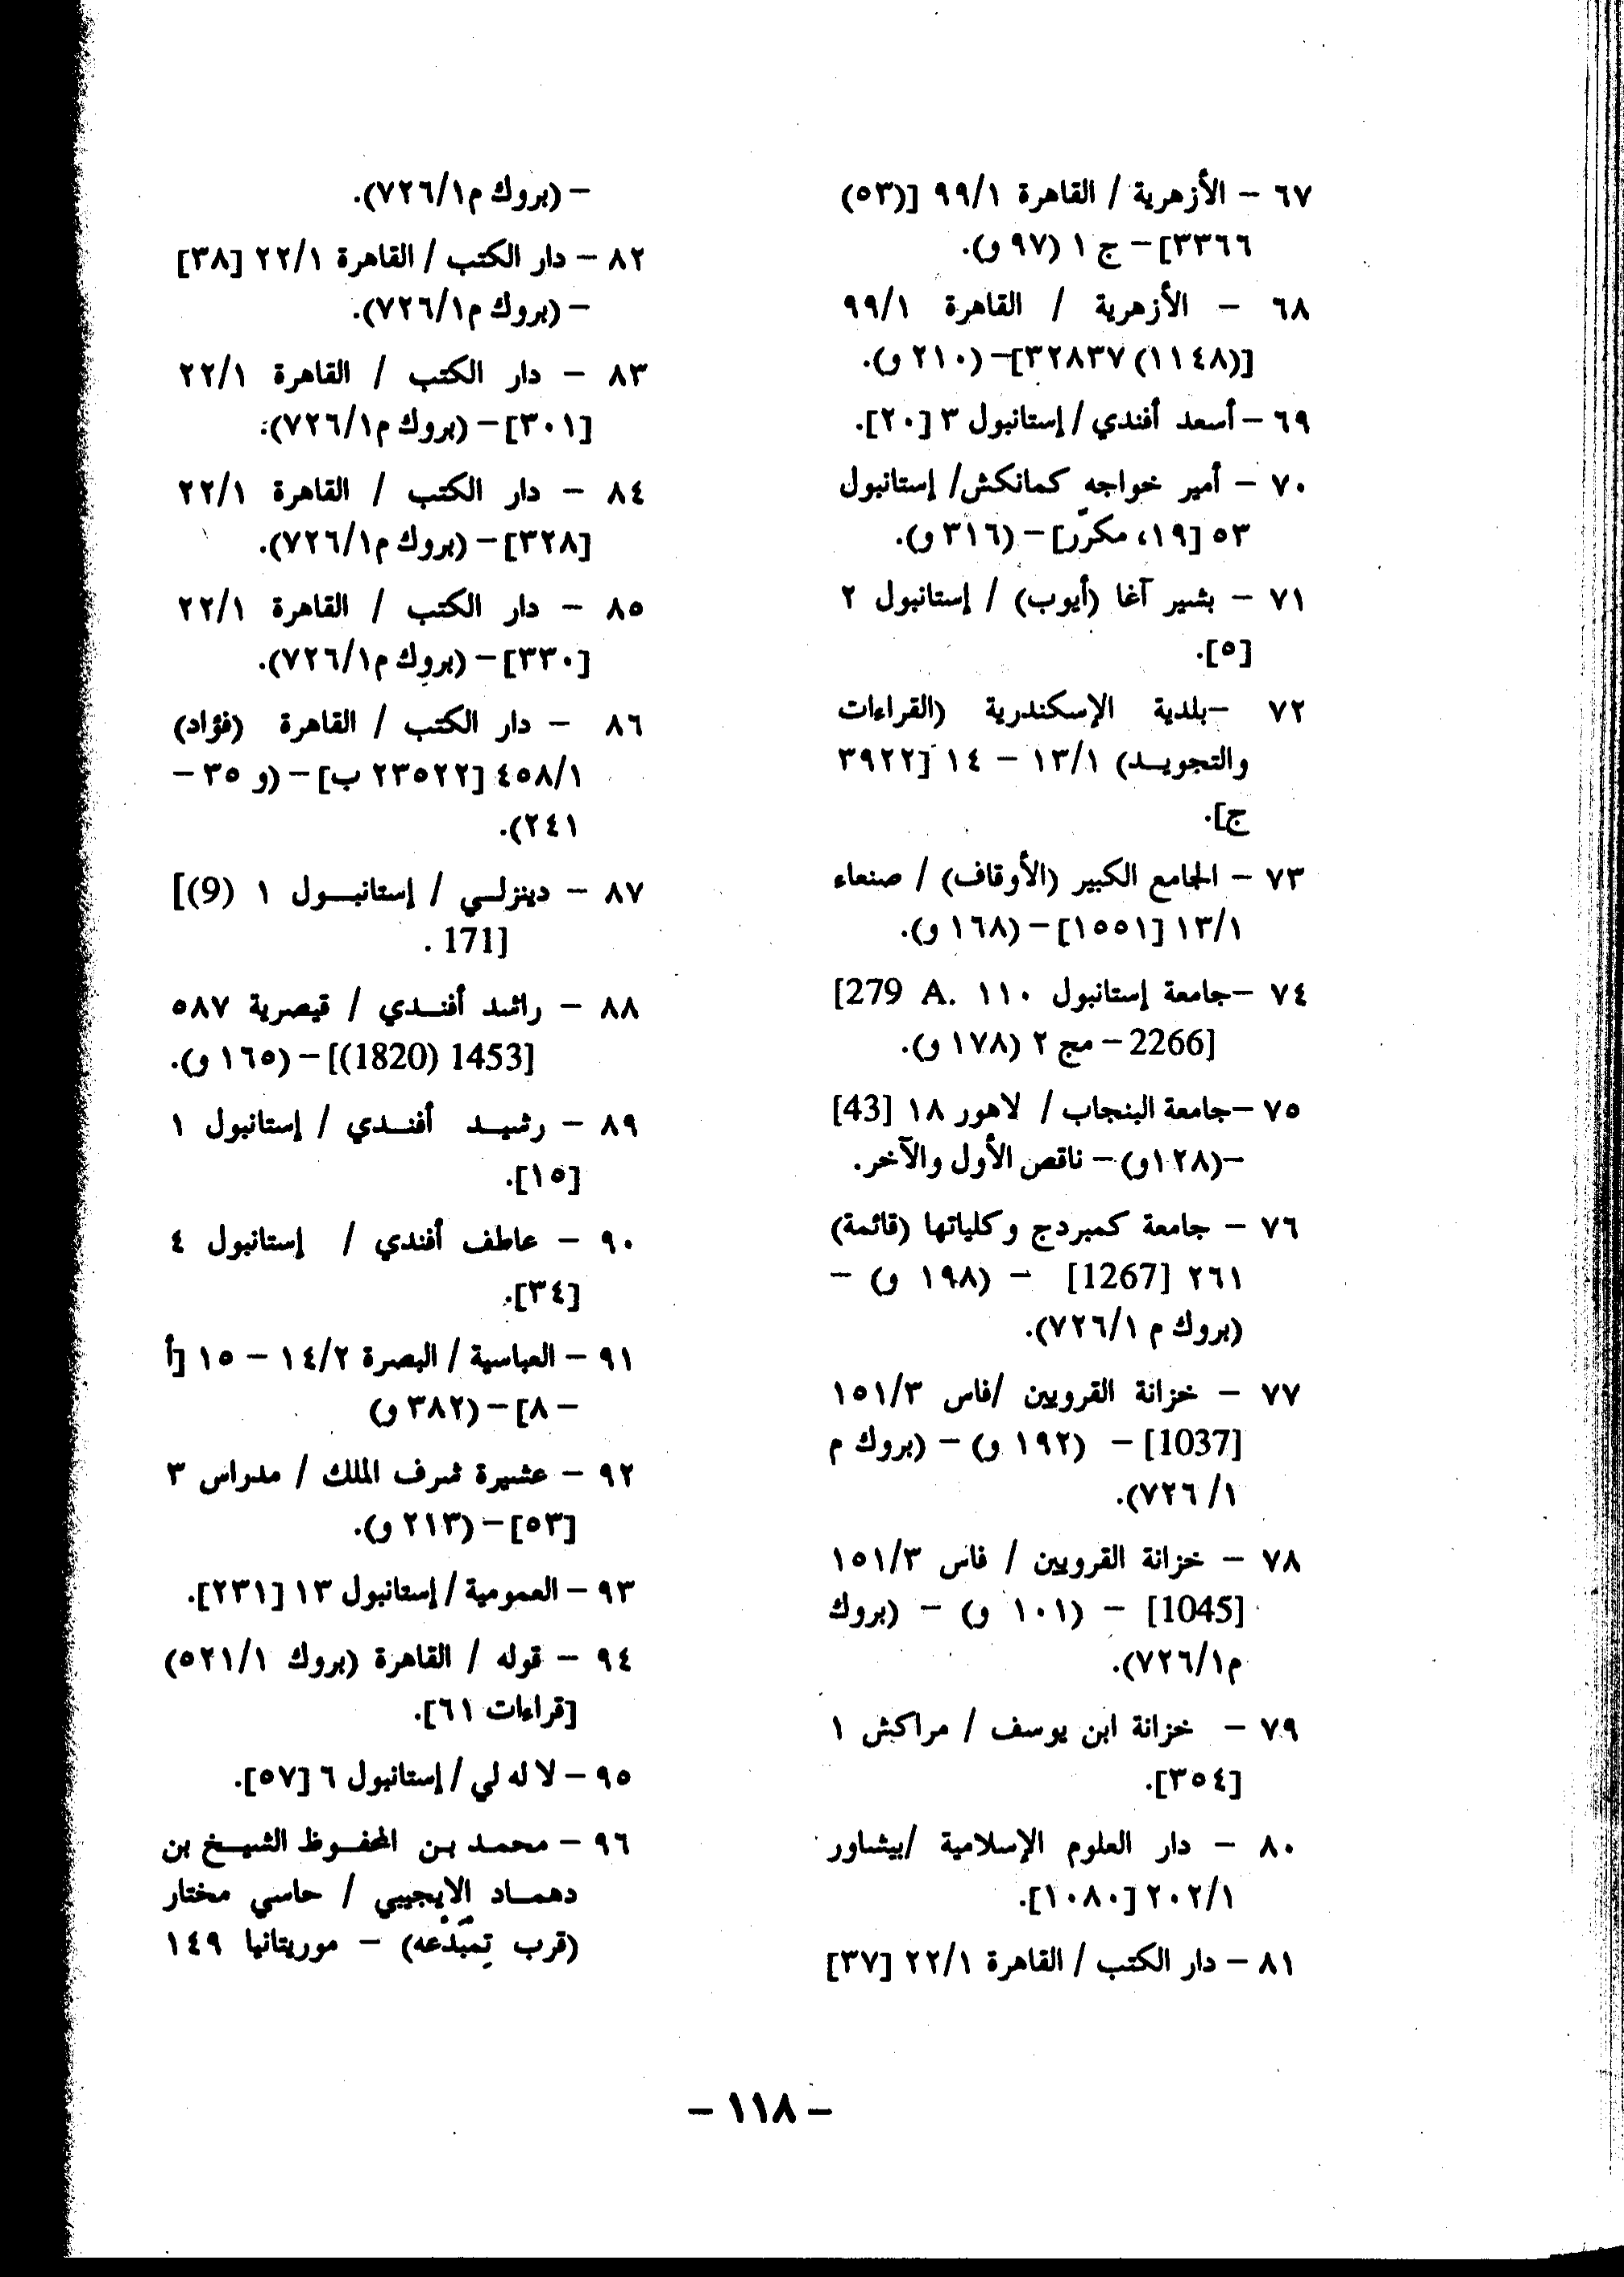 ٦٧ – الأزهرية / القاهرة ٩٩/١ [(٥٣)
٣٣٦٦] – ج ١ (٩٧ و).
٦٨ – الأزهرية / القاهرة ٩٩/١
[(١١٤٨) ٣٢٨٣٧] – (٢١٠ و).
٦٩ – أسعد أفندي / إستانبول ٣ [٢٠].
٧٠ – أمير خواجه كمانكش / إستانبول
٥٣ [١٩، مكرّر] – (٣١٦ و).
٧١ – بشير آغا (أيوب) / إستانبول ٢
[٥].
٧٢ – بلدية الإسكندرية (القراءات
والتجويــد) ١٣/١ – ١٤ [٣٩٢٢
ج].
٧٣ – الجامع الكبير (الأوقاف) / صنعاء
١٣/١ [١٥٥١] – (١٦٨ و).
٧٤ – جامعة إستانبول ١١٠ [279 A.
2266] – مج ٢ (١٧٨ و).
٧٥ – جامعة البنجاب / لاهور ١٨ [43]
– (١٢٨و) – ناقص الأول والآخر.
٧٦ – جامعة كمبردج وكلياتها (قائمة)
٢٦١ [1267] – (١٩٨ و) –
(بروك م ٧٢٦/١).
٧٧ – خزانة القرويين / فاس ١٥١/٣
[1037] – (١٩٢ و) – (بروك م
٧٢٦/١).
٧٨ – خزانة القرويين / فاس ١٥١/٣
[1045] – (١٠١ و) – (بروك
م٧٢٦/١).
٧٩ – خزانة ابن يوسف / مراكش ١
[٣٥٤].
٨٠ – دار العلوم الإسلامية / بيشاور
٢٠٢/١ [١٠٨٠].
٨١ – دار الكتب / القاهرة ٢٢/١ [٣٧]
– (بروك م٧٢٦/١).
٨٢ – دار الكتب / القاهرة ٢٢/١ [٣٨]
– (بروك م٧٢٦/١).
٨٣ – دار الكتب / القاهرة ٢٢/١
[٣٠١] – (بروك م٧٢٦/١).
٨٤ – دار الكتب / القاهرة ٢٢/١
[٣٢٨] – (بروك م٧٢٦/١).
٨٥ – دار الكتب / القاهرة ٢٢/١
[٣٣٠] – (بروك م٧٢٦/١).
٨٦ – دار الكتب / القاهرة (فؤاد)
٤٥٨/١ [٢٣٥٢٢ ب] – (و ٣٥ –
٢٤١).
٨٧ – دينزلــي / إستانبــول ١ [(9)
171] .
٨٨ – راشد أفنــدي / قيصرية ٥٨٧
[1453 (1820)] – (١٦٥ و).
٨٩ – رشيــد أفنــدي / إستانبول ١
[١٥].
٩٠ – عاطف أفندي / إستانبول ٤
[٣٤].
٩١ – العباسية / البصرة ١٤/٢ – ١٥ [أ
– ٨] – (٣٨٢ و)
٩٢ – عشيرة شرف الملك / مدراس ٣
[٥٣] – (٢١٣ و).
٩٣ – العمومية / إستانبول ١٣ [٢٣١].
٩٤ – قوله / القاهرة (بروك ٥٢١/١)
[قراءات ٦١].
٩٥ – لا له لي / إستانبول ٦ [٥٧].
٩٦ – محمــد بــن المحفــوظ الشيــخ بن
دهمــاد الإيجيبي / حاسي مختار
(قرب تِمْبَدْعَه) – موريتانيا ١٤٩
– ١١٨ –